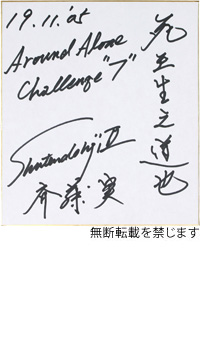 19.11.'05
Around Alone
Challenge "7"
Shuten-dohji II
斉藤実
死生之道也
無断転載を禁じます